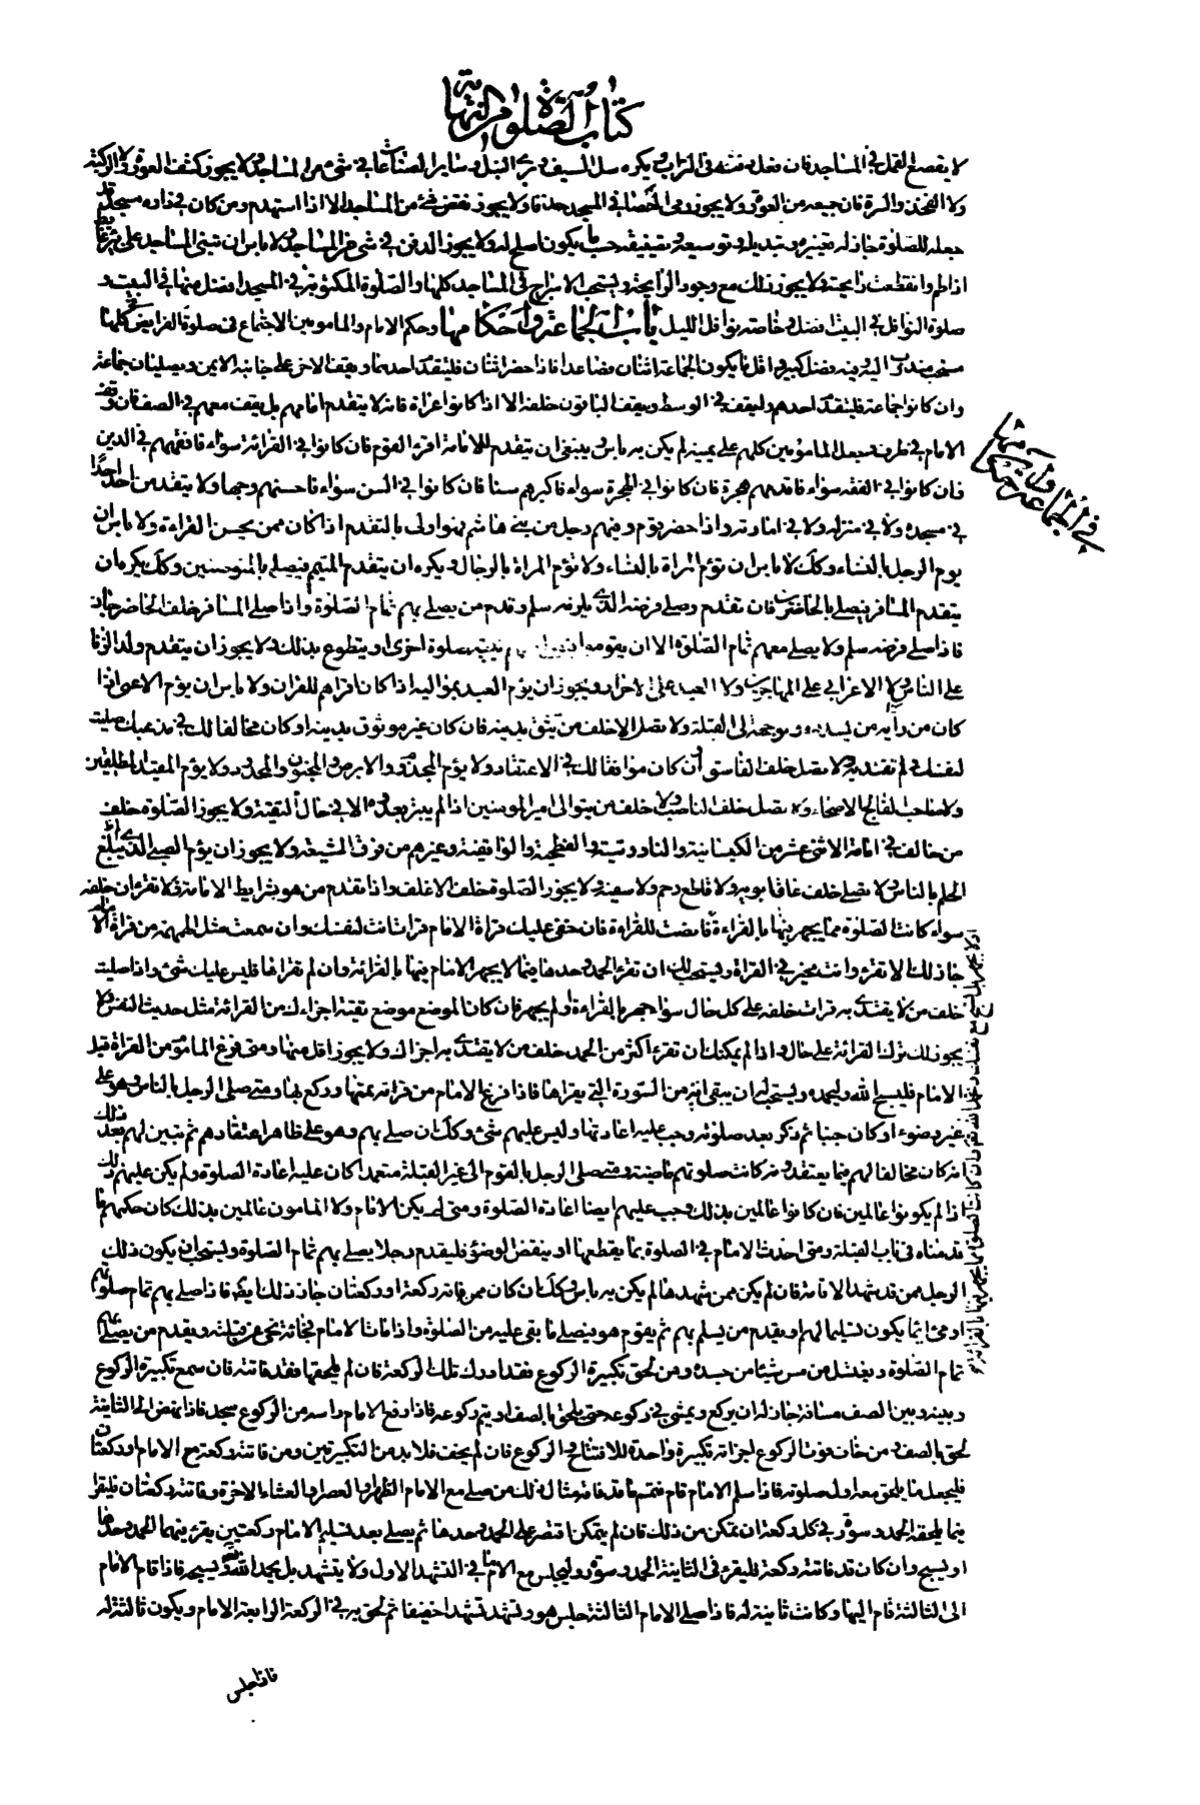 كتاب الصلوة من النهاية
لا يقصع القمل في المساجد فان فعل دفنه في التراب ويكره سل السيف وبرى النبل وساير الصناعات في شئ من المساجد ولا يجوز كشف العورة ولا الركبة
ولا الفخذ والسرة فان جميعه من العورة ولا يجوز رمى الحصا في المسجد حذفا ولا يجوز نقض شئ من المساجد الا اذا استهدم ومن كان في داره مسجد قد
جعله للصلوة جاز له تغييره وتبديله وتوسيعه وتضييقه حسب ما يكون اصلح له ولا يجوز الدفن في شئ من المساجد ولا باس ان تبنى المساجد على بئر غايط
اذا طم وانقطعت رايحته ولا يجوز ذلك مع وجود الرايحة ويستحب الاسراج في المساجد كلها والصلوة المكتوبة في المسجد افضل منها في البيت و
صلوة النوافل في البيت افضل وخاصة نوافل الليل باب الجماعة واحكامها وحكم الامام والمامومين الاجتماع في صلوة الفرايض كلها
مستحب مندوب اليه وفيه فضل كبير واقل ما يكون الجماعة اثنان فصاعدا فاذا حضر اثنان فليتقدم احدهما ويقف الاخر على جانبه الايمن ويصليان جماعة
وان كانوا جماعة فليتقدم احدهم وليقف في الوسط ويقف الباقون خلفه الا اذا كانوا عراة فانه لا يتقدم امامهم بل يقف معهم في الصف فان وقف
الامام في طرف وجعل المامومين كلهم على يمينه لم يكن به باس وينبغي ان يتقدم للامامة اقرء القوم فان كانوا في القرائة سواء فافقههم في الدين
فان كانوا في الفقه سواء فاقدمهم هجرة فان كانوا في الهجرة سواء فاكبرهم سنا فان كانوا في السن سواء فاحسنهم وجها ولا يتقدمن احد احدا
في مسجده ولا في منزله ولا في امارته واذا حضر قوم وفيهم رجل من بنى هاشم فهو اولى بالتقدم اذا كان ممن يحسن القراءة ولا باس ان
يوم الرجل بالنساء وكك لا باس ان تؤم المراة بالنساء ولا تؤم المراة بالرجال ويكره ان يتقدم المتيم فيصلى بالمتوضئين وكك يكره ان
يتقدم المسافر فيصلى بالحاضرين فان تقدم وصلى فرضه الذى يلزمه سلم وقدم من يصلى بهم تمام الصلوة واذا صلى المسافر خلف الحاضر جاز
فاذا صلى فرضه سلم ولا يصلى معهم تمام الصلوة الا ان يقوم صلوة اخرى او يتطوع بذلك ولا يجوز ان يتقدم ولد الزنا
على الناس ولا الاعرابى على المهاجرين ولا العبد على الاحرار ويجوز ان يؤم العبد بمواليه اذا كان اقراهم للقران ولا باس ان يؤم الاعمى اذا
كان من ورايه من يسدده ويوجهه الى القبلة ولا تصل الا خلف من تثق بدينه فان كان غير موثوق بدينه او كان مخالفا لك في مذهبك صليت
لنفسك ولم تقتد به ولا تصل خلف الفاسق وان كان موافقا لك في الاعتقاد ولا يؤم المجذوم والابرص والمجنون والمحدود ولا يؤم المقيد المطلقين
ولا صاحب الفالج الاصحاء ولا تصل خلف الناصب ولا خلف من يتولى امير المومنين اذا لم يبرء من عدوه الا في حال التقية ولا يجوز الصلوة خلف
من خالف في امامة الاثنى عشر من الكيسانية والناووسية والفطحية والواقفية وغيرهم من فرق الشيعة ولا يجوز ان يؤم الصبى الذى لم يبلغ
الحلم بالناس ولا تصلى خلف عاق ابويه ولا قاطع رحم ولا سفيه ولا يجوز الصلوة خلف الاغلف واذا تقدم من هو بشرايط الامامة فلا تقرءن خلفه
سواء كانت الصلوة مما يجهر فيها بالقراءة فانصت للقراءة فان خفى عليك قراءة الامام قرات انت لنفسك وان سمعت مثل الهمهمة من قراءة الامام
جاز لك الا تقرء وانت مخير في القراءة ويستحب لك ان تقرء الحمد وحدها فيما لا يجهر الامام فيها بالقرائة وان لم تقراها فليس عليك شئ واذا صليت
خلف من لا يقتدى به قرات خلفه على كل حال سواء جهر بالقراءة او لم يجهر فان كان الموضع موضع تقية اجزاءك من القرائة مثل حديث النفس ولا
يجوز لك ترك القرائة على حال واذا لم يمكنك ان تقرء اكثر من الحمد خلف من لا يقتدى به اجزاك ولا يجوز اقل منها ومتى فرغ الماموم من القراءة قبل
الامام فليسبح الله وليحمده ويستحب له ان يبقى اية من السورة التى يقراها فاذا فرغ الامام من قراته تممها وركع بها ومتى صلى الرجل بالناس وهو على
غير وضوء او كان جنبا ثم ذكر بعد صلوته وجب عليه اعادتها وليس عليهم شئ وكك ان صلى بهم وهو على ظاهر اعتقادهم ثم تبين لهم بعد ذلك
انه كان مخالفا لهم فيما يعتقدونه كانت صلوتهم ماضية ومتى صلى الرجل بالقوم الى غير القبلة متعمدا كان عليه اعادة الصلوة ولم يكن عليهم ذلك
اذا لم يكونوا عالمين فان كانوا عالمين بذلك وجب عليهم ايضا اعادة الصلوة ومتى لم يكن الامام ولا المامون عالمين بذلك كان حكمهم ما
قدمناه في باب القبلة ومتى احدث الامام في الصلوة بما يقطعها او ينقض الوضوء فليقدم رجلا يصلى بهم تمام الصلوة ويستحب ان يكون ذلك
الرجل ممن قد شهد الاقامة فان لم يكن ممن شهدها لم يكن به باس وكك ان كان ممن فاته ركعة او ركعتان جاز ذلك ايضا فاذا صلى بهم تمام صلوتهم
اومى ايما يكون تسليما لهم او يقدم من يسلم بهم ثم يقوم هو فيصلى ما بقى عليه من الصلوة واذا مات الامام فجاة نحى عن قبلته ويقدم من يصلى بهم
تمام الصلوة ويغتسل من مس شيئا من جسده ومن لحق تكبيرة الركوع فقد ادرك تلك الركعة فان لم يلحقها فقد فاتته فان سمع تكبيرة الركوع
وبينه وبين الصف مسافة جاز له ان يركع ويمشى في ركوعه حتى يلحق بالصف او يتم ركوعه فاذا رفع الامام راسه من الركوع سجد فاذا نهض الى الثانية
لحق بالصف ومن خاف فوت الركوع اجزاته تكبيرة واحدة للافتتاح والركوع فان لم يخف فلا بد من التكبيرتين ومن فاتته ركعة مع الامام او ركعتان
فليجعل ما يلحق معه اول صلوته فاذا سلم الامام قام فتمم ما قد فاته مثال ذلك من صلى مع الامام الظهر او العصر او العشاء الاخرة وفاتته ركعتان فليقرا
فيما يلحقه الحمد وسورة في كل ركعة ان تمكن من ذلك فان لم يتمكن اقتصر على الحمد وحدها ثم يصلى بعد تسليم الامام ركعتين يقرء فيهما الحمد وحدها
او يسبح وان كان قد فاتته ركعة فليقرء في الثانية الحمد وسورة وليجلس مع الامام في التشهد الاول ولا يتشهد بل يحمد الله ويسبحه فاذا قام الامام
الى الثالثة قام اليها وكانت ثانية له فاذا صلى الامام الثالثة جلس هو وتشهد تشهدا خفيفا ثم لحق به في الركعة الرابعة الامام ويكون ثالثة له
فاذا جلس
في الجماعة واحكامها
او لا يجهر بل تسبح مع نفسك وتحمد الله تعالى وان كانت الصلوة مما يجهر فيها بالقرائة